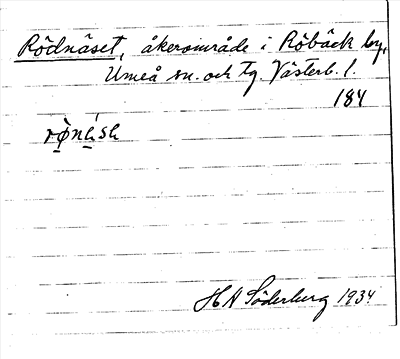 Rödnäset, åkerområde i Röbäck by,
Umeå sn. och tg. Västerb. l.
184
H A Söderberg 1934